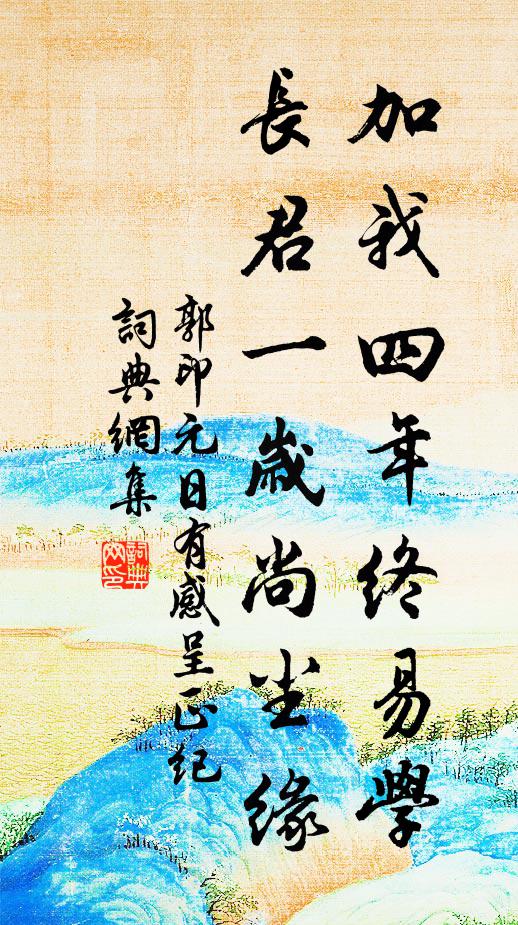 加我四年終易學
長君一歲尚塵緣
郭印元日有感呈正紀
詞典網集
詞典
网印